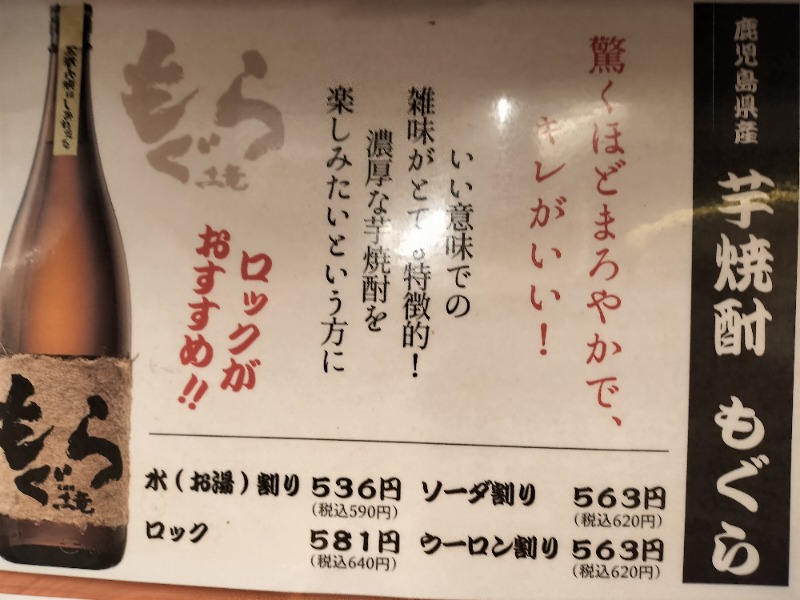 鹿児島県産 芋焼酎 もぐら
驚くほどまろやかで、
キレがいい！
いい意味での
雑味がとても特徴的！
濃厚な芋焼酎を
楽しみたいという方に
もぐら
土竜
ロックが
おすすめ!!
もぐら
土竜
水（お湯）割り 536円
（税込590円）
ソーダ割り 563円
（税込620円）
ロック 581円
（税込640円）
ウーロン割り 563円
（税込620円）